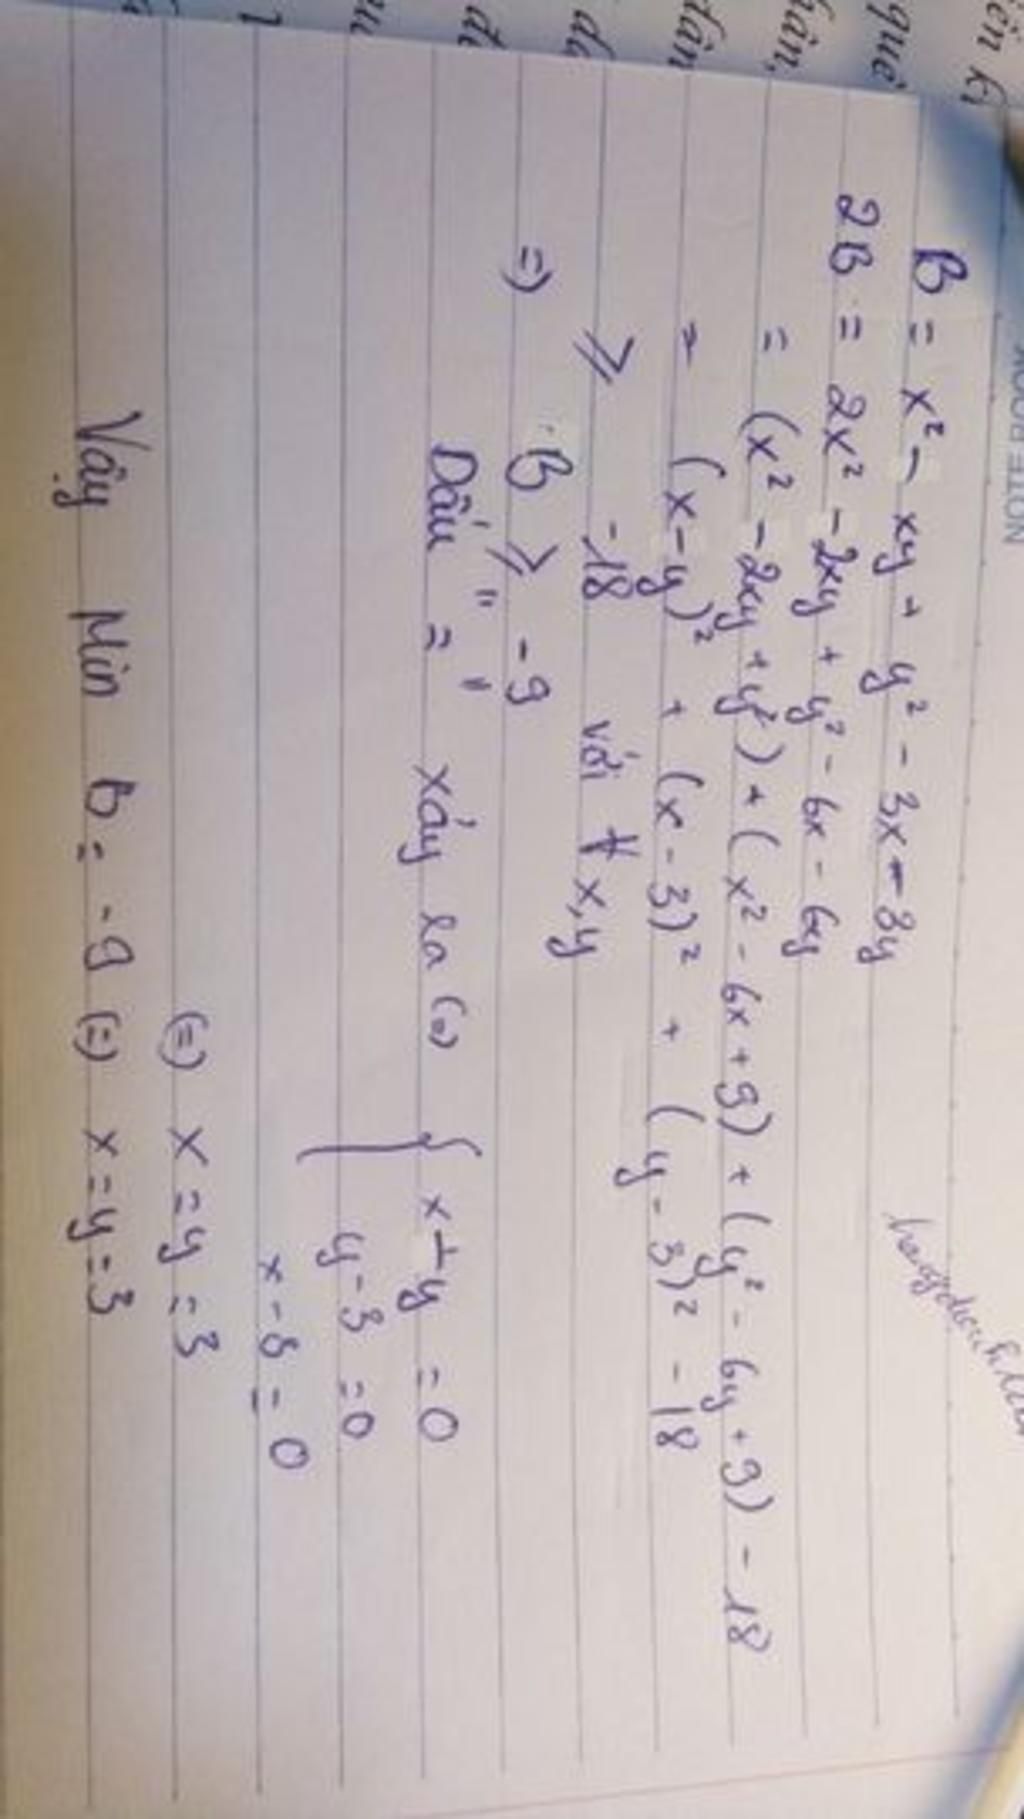 NOTE BOOK
B = x² - xy + y² - 3x - 3y
2B = 2x² - 2xy + y² - 6x - 6y
= (x² - 2xy + y²) + (x² - 6x + 9) + (y² - 6y + 9) - 18
= (x - y)² + (x - 3)² + (y - 3)² - 18
⩾ -18 với ∀ x, y
=> B ⩾ -9
Dấu "=" xảy ra (=) { x - y = 0
y - 3 = 0
x - 3 = 0
(=) x = y = 3
Vậy Min B = -9 (=) x = y = 3